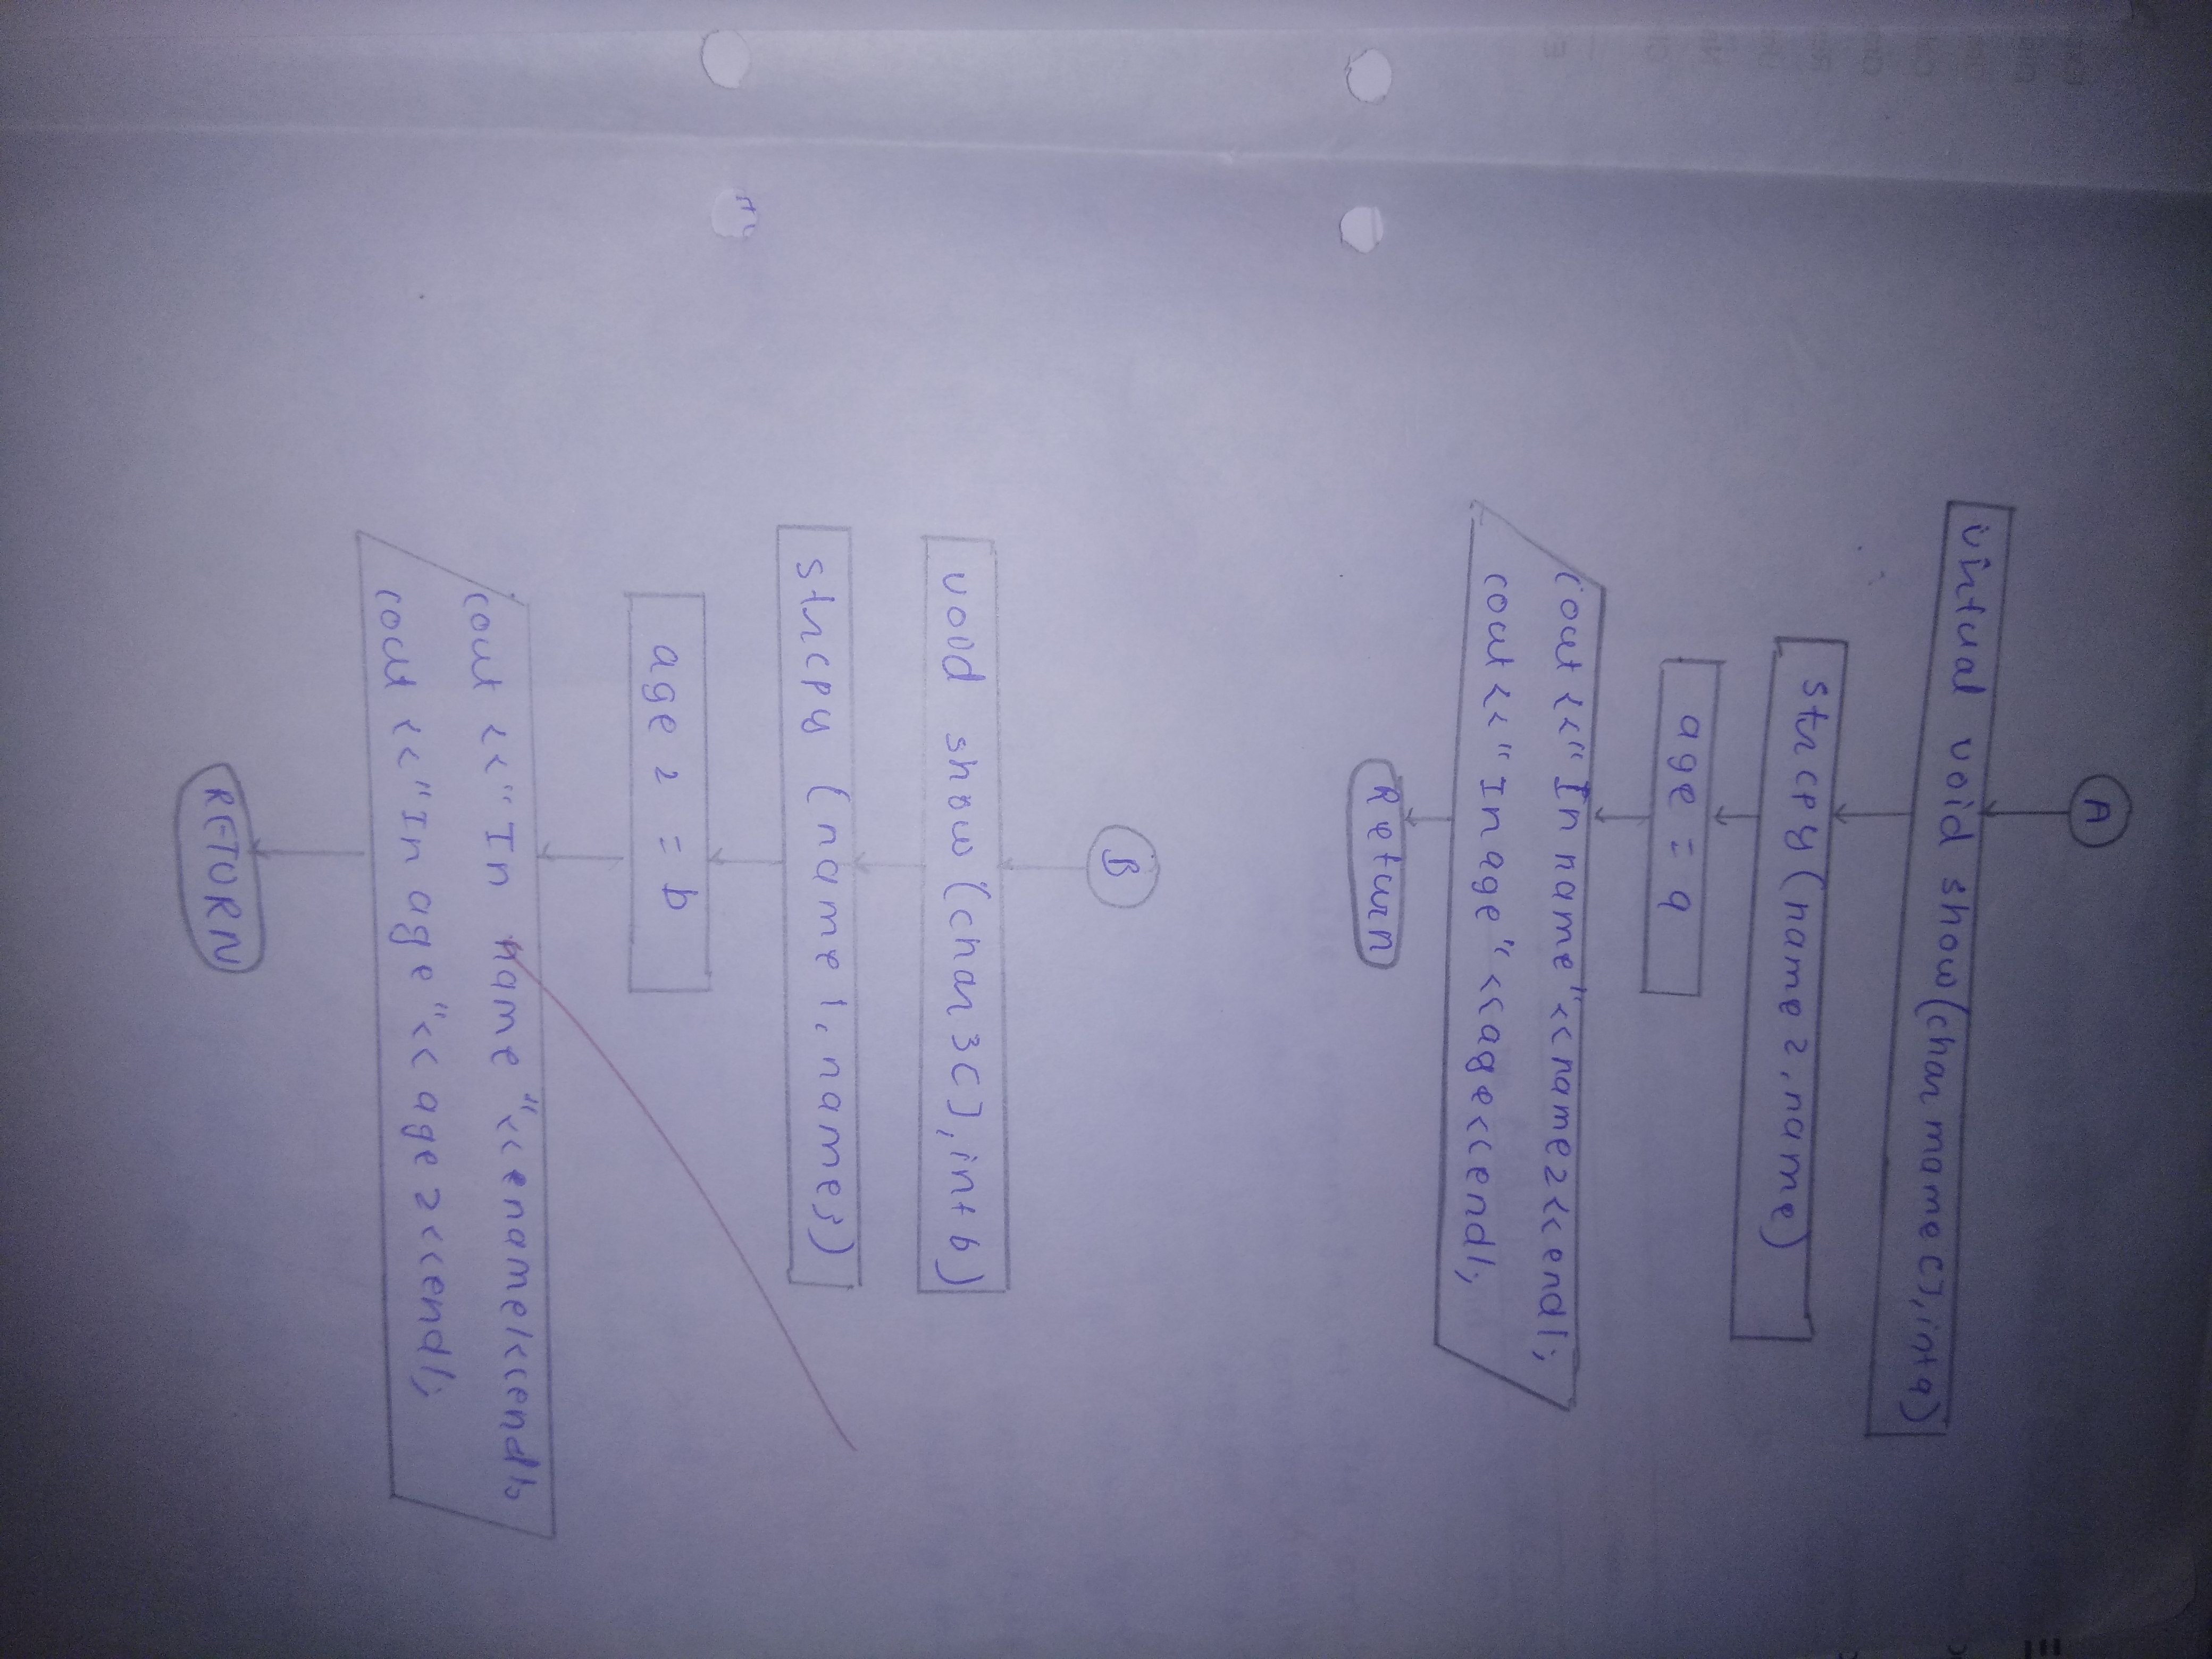 A
virtual void show(char name[], int a)
strcpy(name2, name)
age = a
cout <<"In name"<<name2<<endl;
cout <<"In age"<<age<<endl;
Return
B
void show(char 3[], int b)
strcpy (name1, name3)
age2 = b
cout <<"In name"<<ename1<<endl;
cout <<"In age"<<age2<<endl;
RETURN